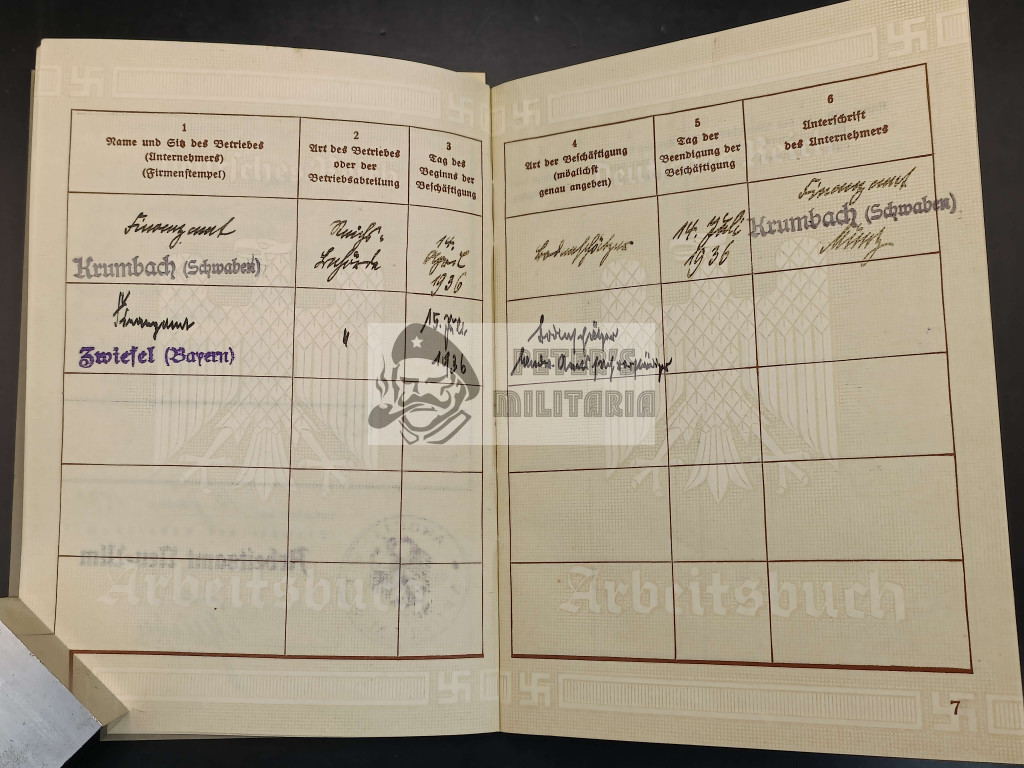 1
Name und Sitz des Betriebes
(Unternehmers)
(Firmenstempel)
2
Art des Betriebes
oder der
Betriebsabteilung
3
Tag des
Beginns der
Beschäftigung
4
Art der Beschäftigung
(möglichst
genau angeben)
5
Tag der
Beendigung der
Beschäftigung
6
Unterschrift
des Unternehmers
Finanzamt
Krumbach (Schwaben)
Reichs-
behörde
14.
April
1936
Bodenschätzer
14. Juli
1936
Finanzamt
Krumbach (Schwaben)
Finanzamt
Zwiesel (Bayern)
"
15. Juli
1936
Bodenschätzer
MILITARIA
Arbeitsamt Neu-Ulm
Arbeitsbuch
Arbeitsbuch
7